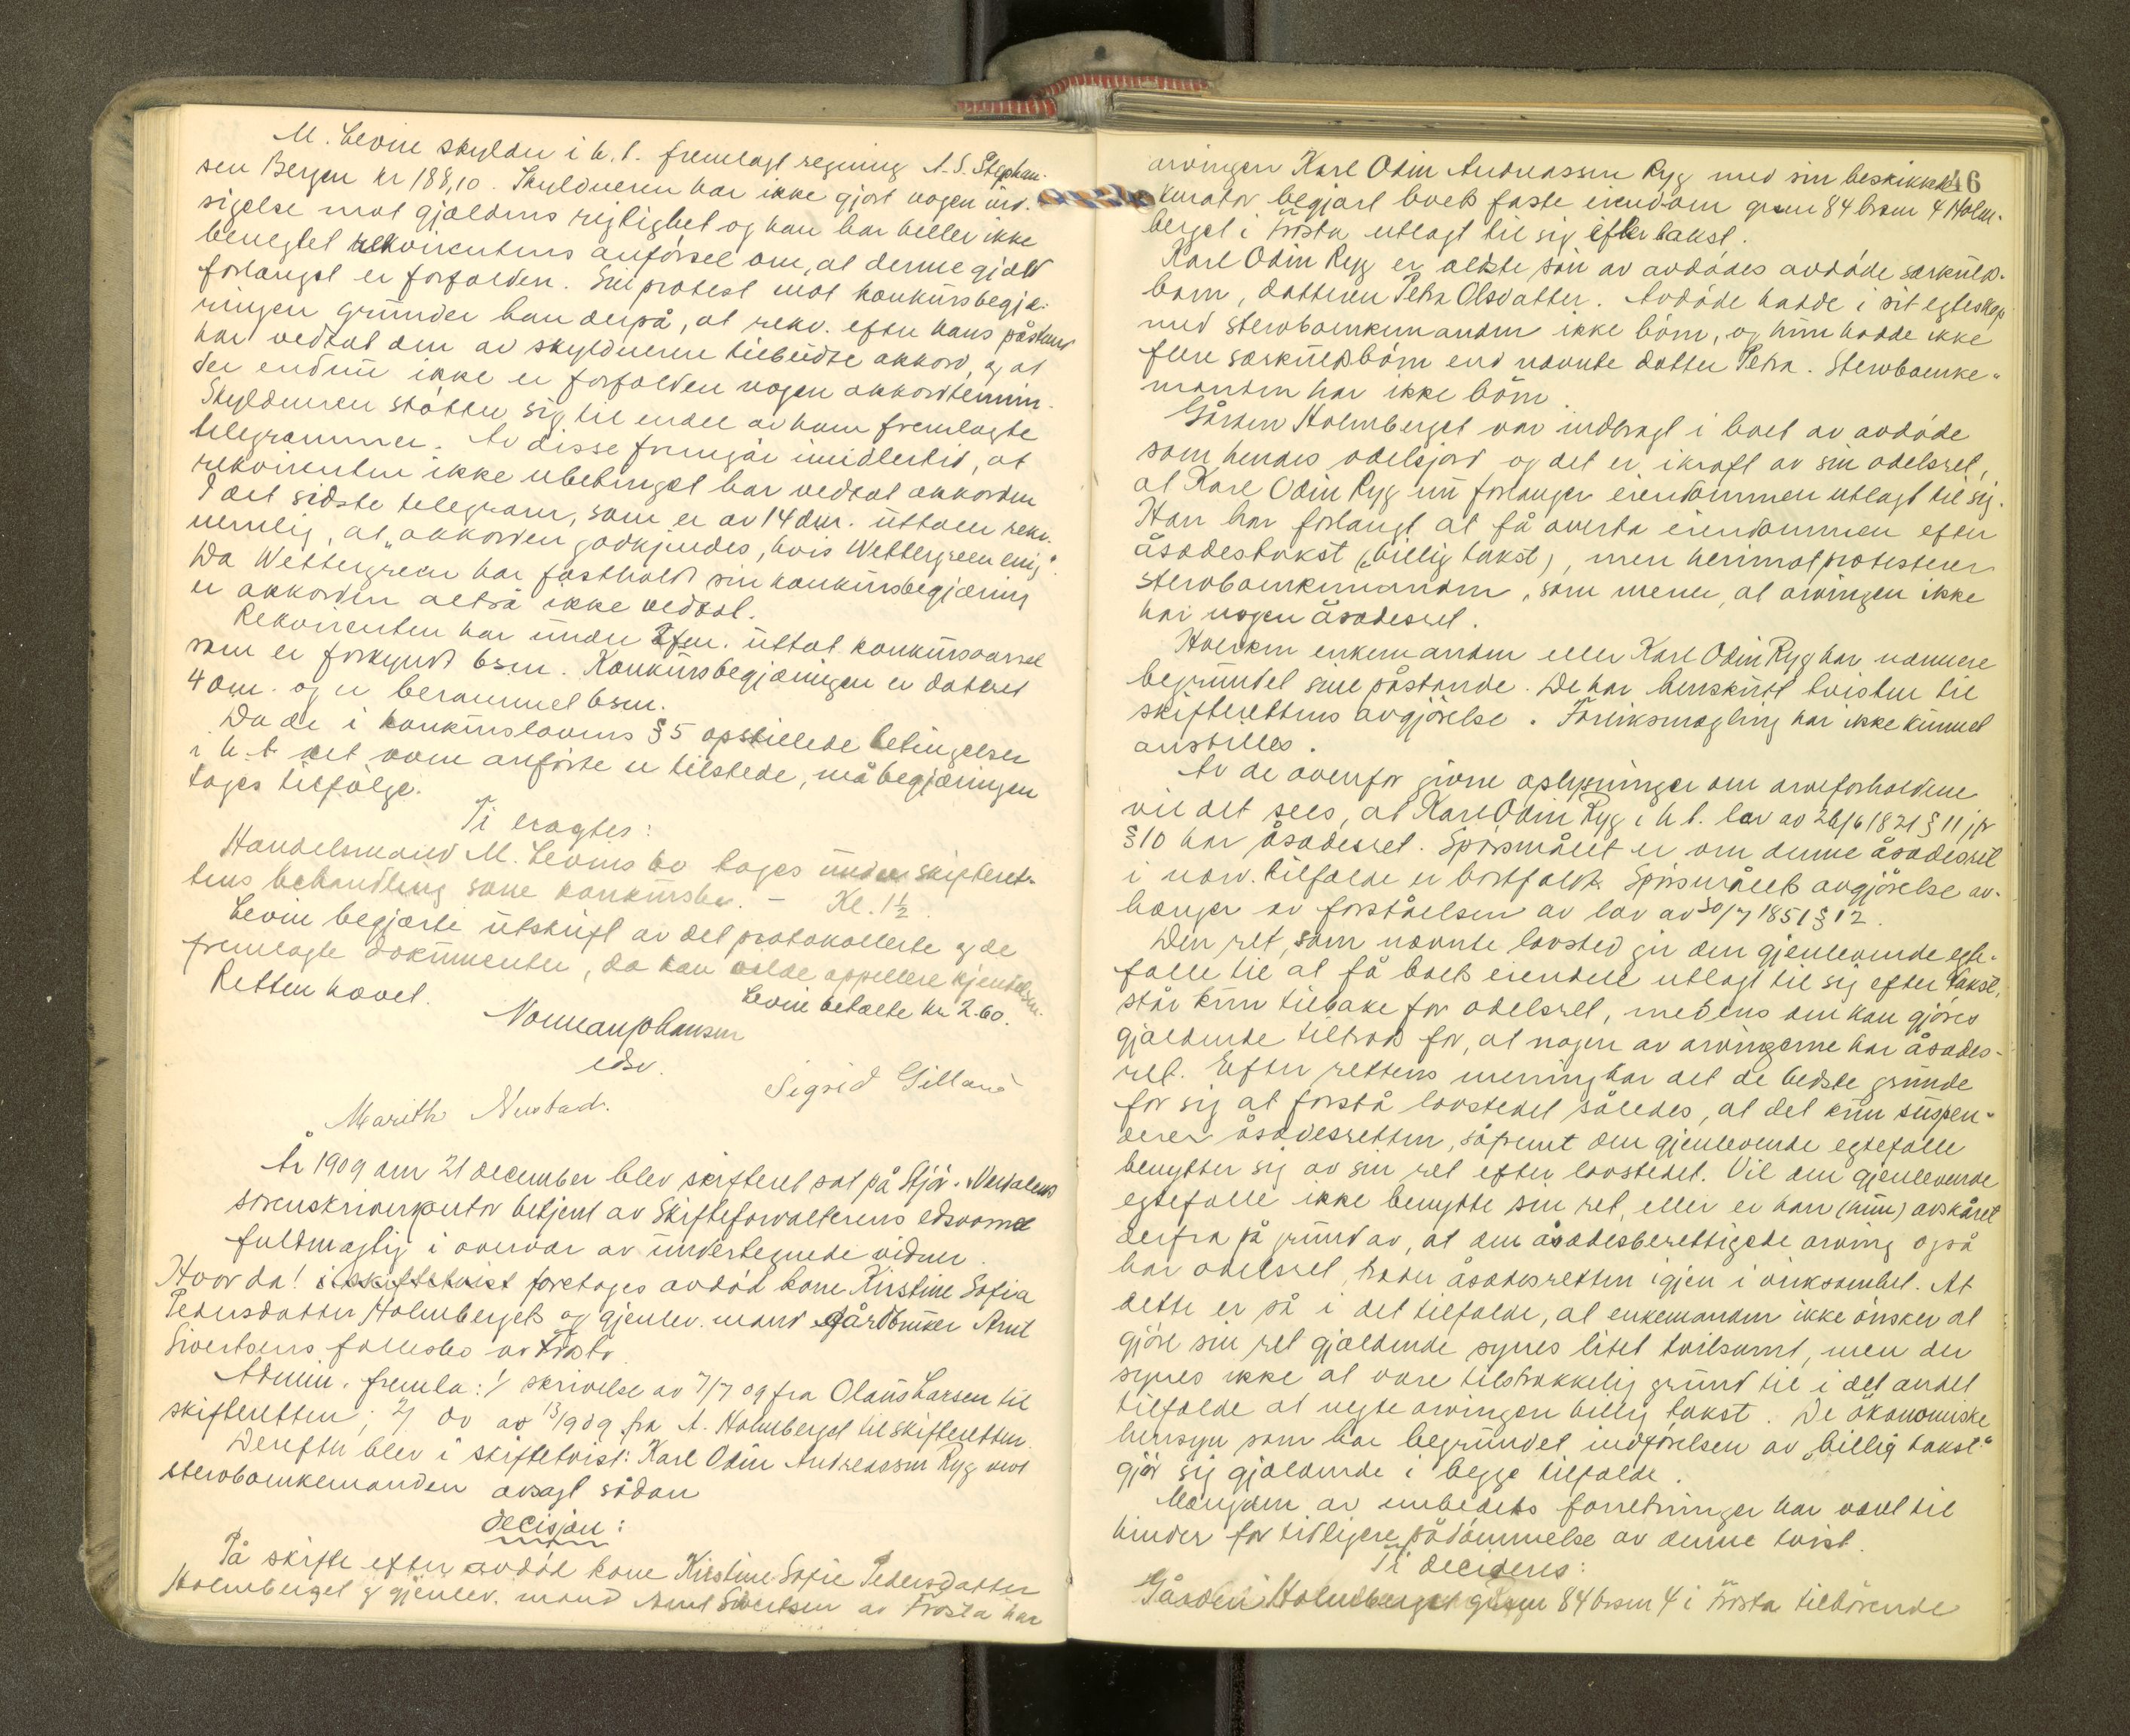 M. Levin skylder i h. t. fremlagt regning A. S. Stephan-
sen Bergen kr 188,10. Skyldneren har ikke gjort nogen ind-
sigelse mot gjældens rigtighet og han har heller ikke
benegtet rekvirentens anførsel om, at denne gjæld
forlængst er forfalden. Sin protest mot konkursbegjæ-
ringen grunder han derpå, at rekv. efter hans påstand
har vedtat den av skyldneren tilbudte akkord, og at
der endnu ikke er forfalden nogen akkordtermin.
Skyldneren støtter sig til endel av ham fremlagte
telegrammer. Av disse fremgår imidlertid, at
rekvirenten ikke ubetinget har vedtat akkorden
I det sidste telegram, som er av 14 dm. uttaler rekv.
nemlig, at "akkorden godkjendes, hvis Wettergreen enig".
Da Wettergreen har fastholdt sin konkursbegjæring
er akkorden altså ikke vedtat.
Rekvirenten har under 2 fm. uttat konkursvarsel
som er forkyndt 6 sm. Konkursbegjæringen er dateret
4 dm. og er berammet 6 sm.
Da de i konkurslovens § 5 opstillede betingelser
i h. t. det oven anførte er tilstede, må begjæringen
tages tilfølge.
Ti eragtes:
Handelsmand M. Levins bo tages under skifteret-
tens behandling som konkursbo. - Kl. 1½.
Levin begjærte utskrift av det protokollerte og de
fremlagte dokumenter, da han vilde appellere kjendelsen.
Levin betalte kr 2.60.
Retten hævet.
Normann Johansen
edsv.
Sigrid Gilland
Marith Nustad.
År 1909 den 21 december blev skifteret sat på Stjør- Værdalens
sorenskriverkontor betjent av Skifteforvalterens edsvorne
fuldmægtig i overvær av undertegnede vidner.
Hvorda! i skiftetvist foretages avdød kone Kirstine Sofia
Pedersdatter Holmbergets og gjenlev. mand gårdbruker Arnt
Sivertsens fællesbo av Frosta
Admin. fremla: 1/ skrivelse av 7/7 09 fra Olaus Larsen til
skifteretten; 2/ do av 13/9 09 fra A. Holmberget til skifteretten.
Derefter blev i skiftetvist: Karl Odin Andreassen Ryg mot
stervboenkemanden avsagt sådan
decisjon:
På skifte efter avdød kone Kirstine Sofie Pedersdatter
Holmberget og gjenlev. mand Arnt Sivertsen av Frosta har
46
arvingen Karl Odin Andreassen Ryg med sin beskikkede
kurator begjært boets faste eiendom grsn 84 brsn 4 Holm-
berget i Frosta utlagt til sig efter takst.
Karl Odin Ryg er ældste søn av avdødes avdøde særkuld-
barn, datteren Petra Olsdatter. Avdøde hadde i sit egteskap
med stervboenkemanden ikke børn, og hun hadde ikke
flere særkuldsbørn end nævnte datter Petra. Stervboenke-
manden har ikke børn.
Gården Holmberget var indbragt i boet av avdøde
som hendes odelsjord og det er i kraft av sin odelsret,
at Karl Odin Ryg nu forlanger eiendommen utlagt til sig.
Han har forlangt at få overta eiendommen efter
åsædestakst ("billig takst), men herimot protesterer
stervboenkemanden, som mener, at arvingen ikke
har nogen åsædesret.
Hverken enkemanden eller Karl Odin Ryg har nærmere
begrundet sine påstande. De har henskutt tvisten til
skifterettens avgjørelse. Forliksmægling har ikke kunnet
anstilles.
Av de ovenfor givne oplysninger om arveforholdene
vil det sees, at Karl Odin Ryg i h. t. lov av 26/6 1821 § 11 jfr
§ 10 har åsædesret. Spørsmålet er om denne åsædesret
i nærv. tilfælde er bortfaldt. Spørsmålets avgjørelse av-
hænger av forståelsen av lov av 30/7 1851 § 12.
Den ret, som nævnte lovsted gir den gjenlevende egte-
fælle til at få boets eiendele utlagt til sig efter takst,
står kun tilbake for odelsret, medens den kan gjøres
gjældende tiltrods for, at nogen av arvingerne har åsædes-
ret. Efter rettens mening har det de bedste grunde
for sig at forstå lovstedet således, at det kun suspen-
derer åsædesretten, såfremt den gjenlevende egtefælle
benytter sig av sin ret efter lovstedet. Vil den gjenlevende
egtefælle ikke benytte sin ret, eller er han (hun) avskåret
derfra på grund av, at den åsædesberettigede arving også
har odelsret, træder åsædesretten igjen i virksomhet. At
dette er så i det tilfælde, at enkemanden ikke ønsker at
gjøre sin ret gjældende synes litet tvilsomt, men der
synes ikke at være tilstrækkelig grund til i det andet
tilfælde at negte arvingen billig takst. De økonomiske
hensyn som har begrundet indførelsen av "billig takst"
gjør sig gjældende i begge tilfælde.
Mængden av embedets forretninger har været til
hinder for tidligere pådømmelse av denne tvist.
Ti decideres:
Gården Holmberget grsn 84 brsn 4 i Frosta tilhørende